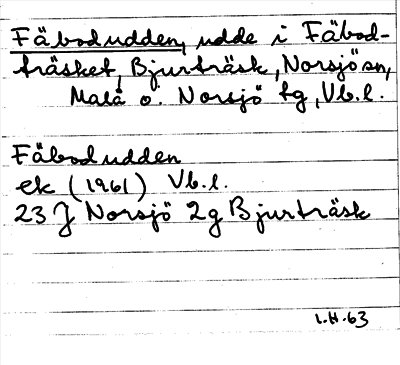 Fäbodudden, udde i Fäbod-
träsket, Bjurträsk, Norsjö sn,
Malå o. Norsjö tg, Vb.l.
Fäbodudden
ek (1961) Vb.l.
23 J Norsjö 2g Bjurträsk
L.H.63